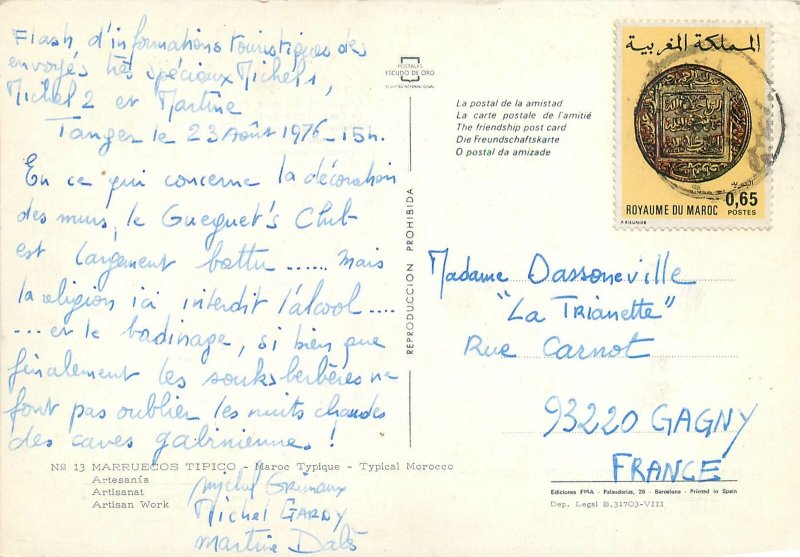 Flash d'informations touristiques des
envoyés très spéciaux Michel 1,
Michel 2 et Martine
Tanger le 23 Août 1976 - 15h.
En ce qui concerne la décoration
des murs, le Gueguet's Club
est largement battu ...... Mais
la religion ici interdit l'alcool ....
.... et le badinage, si bien que
finalement les souks berbères ne
font pas oublier les nuits chaudes
des caves gabinienne. !
Nº 13 MARRUECOS TIPICO - Maroc Typique - Typical Morocco
Artesanía
Artisanat
Artisan Work
Michel Grimaux
Michel GARDY
Martine
POSTALES
ESCUDO DE ORO
REPRODUCCION PROHIBIDA
La postal de la amistad
La carte postale de l'amitié
The friendship post card
Die Freundschaftskarte
O postal da amizade
المملكة المغربية
ROYAUME DU MAROC 0,65
POSTES
Madame Dassoneville
"La Trianette"
Rue Carnot
93220 GAGNY
FRANCE
Ediciones FISA - Palaudarias, 26 - Barcelona - Printed in Spain
Dep. Legal B.31703-VIII